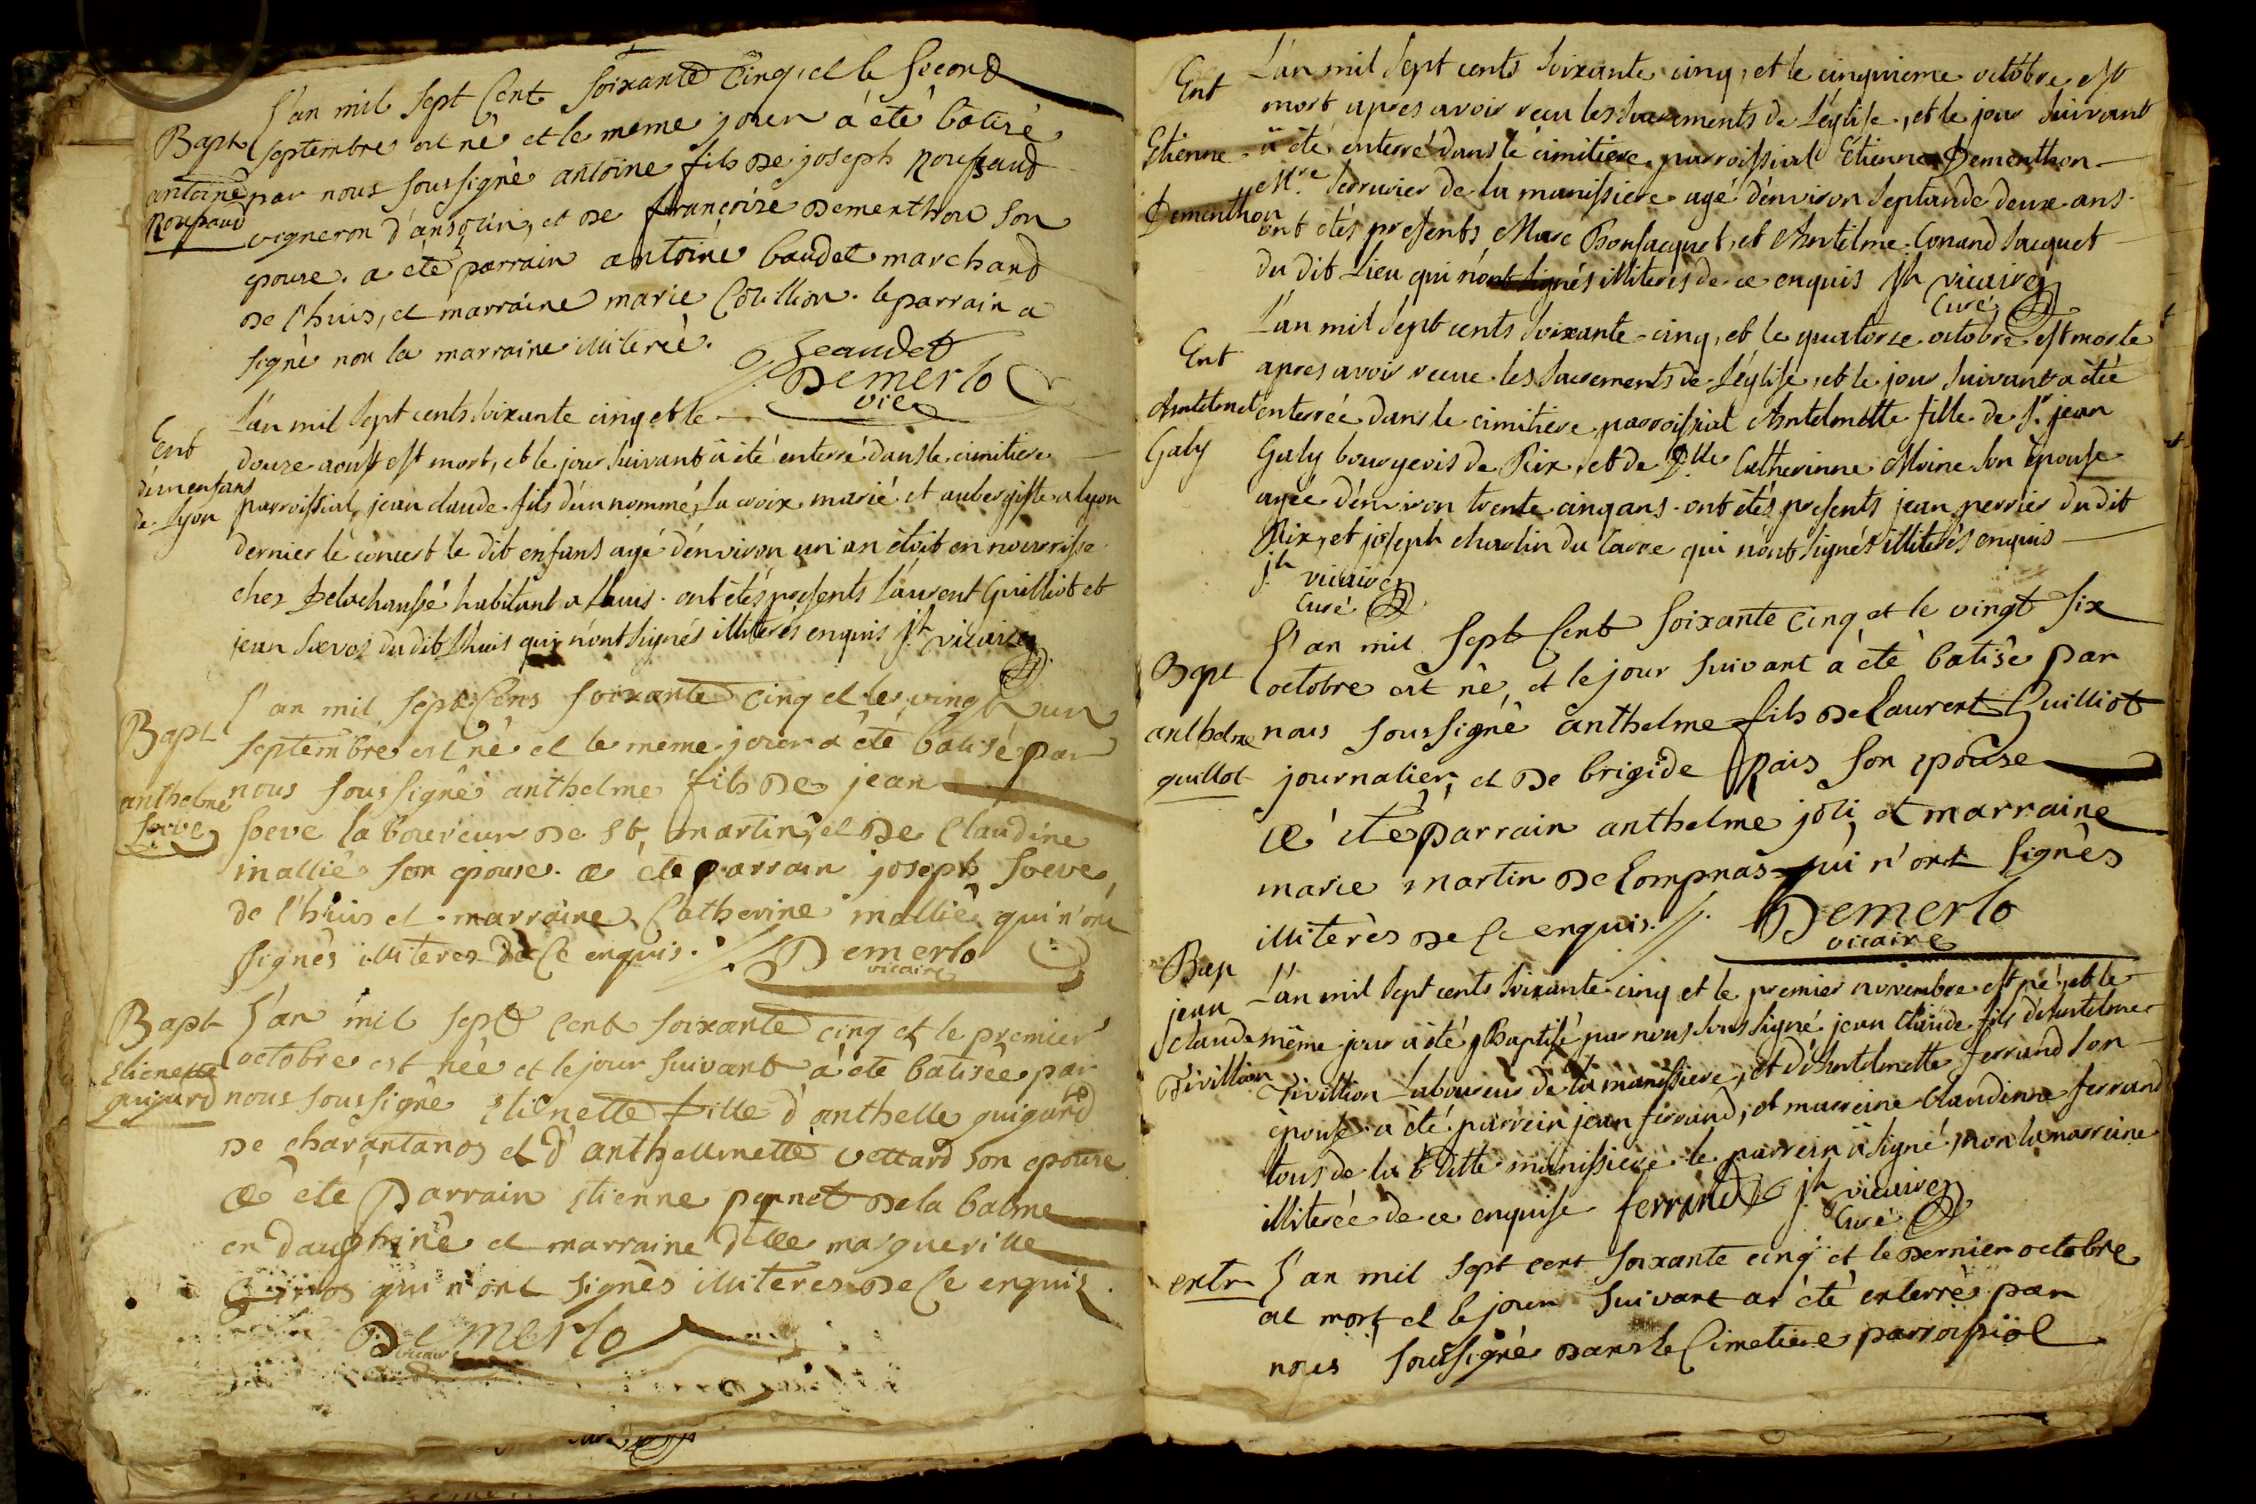 L'an mil sept Cent soixante Cinq, et le second
Bapt septembre est nê et le meme jour à étè batisé
antoine par nous soussignê antoine fils de joseph
vigneron d'ansolin, et de françoise dementhon son
epouse. a étè parrain antoine baudet marchand
de l'huis, et marraine marie Cotillion. le parrain a
signè non la marraine illiterèe.
beaudet
Demerlo
vic
L'an mil sept cents soixante cinq et le
Ent douze aoust est mort, et le jour suivant â été enterré dans le cimitiere
d'un enfans parroissial, jean claude fils d'un nommé, la croix marié et aubergiste a lyon
de Lyon
dernier le concert le dit enfans agé d'environ un an étoit en nourrisse
chez Delachaussé habitant a Lhuis. ont étés presents Laurent Guilliot et
jean Sevoz du dit Lhuis qui n'ont signés illiterés enquis jh vicaire
L'an mil sept Cens soixante Cinq et le vingt un
Bapt septembre est nè et le meme jour a étè batisè par
anthelme nous soussignê anthelme fils de jean
soeve soeve laboureur de St, martin, et de Claudine
malliê son epouse. a ete parrain joseph soeve,
de l'huis et marraine Catherine malliê qui n'ont
signês illiteres de Ce enquis.
Demerlo
vicaire
Bapt L'an mil sept Cent soixante cinq et le premier
Etienette octobre est nêe et le jour suivant à ete batisèe par
guigard nous soussignê Etienette fille d'anthelle guigard
de charantanos et d'anthellmette vettard son epouse
a ête Parrain Etienne pernet de la balme
en dauphinê et marraine
qui n'ont signês illiteres de Ce enquis.
Demerlo
vicaire
L'an mil sept cents soixante cinq, et le cinquieme octobre est
Ent mort apres avoir reçu les sacrements de L'église, et le jour suivant
Etienne â été enterré dans le cimitiere parroissial Etienne Dementhon
Dementhon Mre Serrurier de la manissiere agé d'environ septande deux ans.
ont étés presents Marc Bonjacquet, et Antelme Conand Jacquet
du dit Lieu qui n'ont signés illiterés de ce enquis jh vicaire
Curé
L'an mil sept cents soixante-cinq, et le quatorze octobre est morte
Ent apres avoir recue les sacrements de L'église, et le jour suivant a étée
Antelmet enterrée dans le cimitiere parroissial Antelmette fille de Sr. jean
Galy Galy bourgeois de Rix, et de Dlle Catherinne Moine son épouse
agée d'environ trente cinq ans. ont étés presents jean perrier du dit
Rix, et joseph charlin du Carre qui n'ont signés illiterés enquis
jh vicaire
Curé
L'an mil sept Cent soixante Cinq et le vingt six
Bapt octobre est nê, et le jour suivant a ètè batisê par
anthelme nous soussignê anthelme fils de Laurent Guilliot
guillot journalier, et de brigide Rais son epouse
a été Parrain anthelme joli et marraine
marie martin de Lompnas qui n'ont signês
illiterês de Ce enquis.
Demerlo
vicaire
Bap L'an mil sept cents soixante cinq et le premier novembre est né, et le
jean
claude même jour a été Baptisé par nous soussigné jean claude fils d'Antelme
Tivillion Tivillion Laboureur de la manissiere, et d'Antelmette ferrand son
épouse. a été parrein jean ferrand, et marreine claudinne ferrand
tous de la ditte manissiere le parrein a signé, non la marreine
illiterée de ce enquise ferrand jh vicaire
Curé
entr L'an mil sept cent soixante cinq et le dernier octobre
et mort, et le jour suivant at étè enterrè par
nous soussignè dans le Cimetiere parroissial